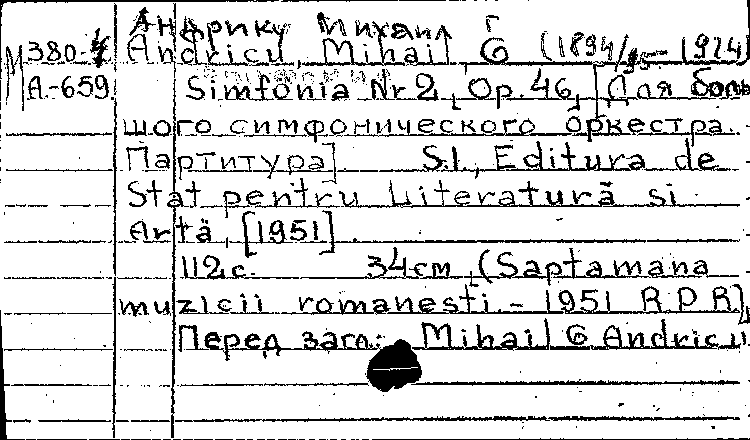 Андрику Михаил Г
М380-4 Andricu, Mihail G (1894/95-1974)
А-659 Simfonia Nr 2, Op. 46, [Для боль
шого симфонического оркестра.
Партитура] S.l., Editura de
Stat pentru Literatură si
Artă, [1951].
112 с. 34 см, (Saptamana
muzicii romanesti - 1951 R.P.R.),
Перед загл.: Mihail G Andricu